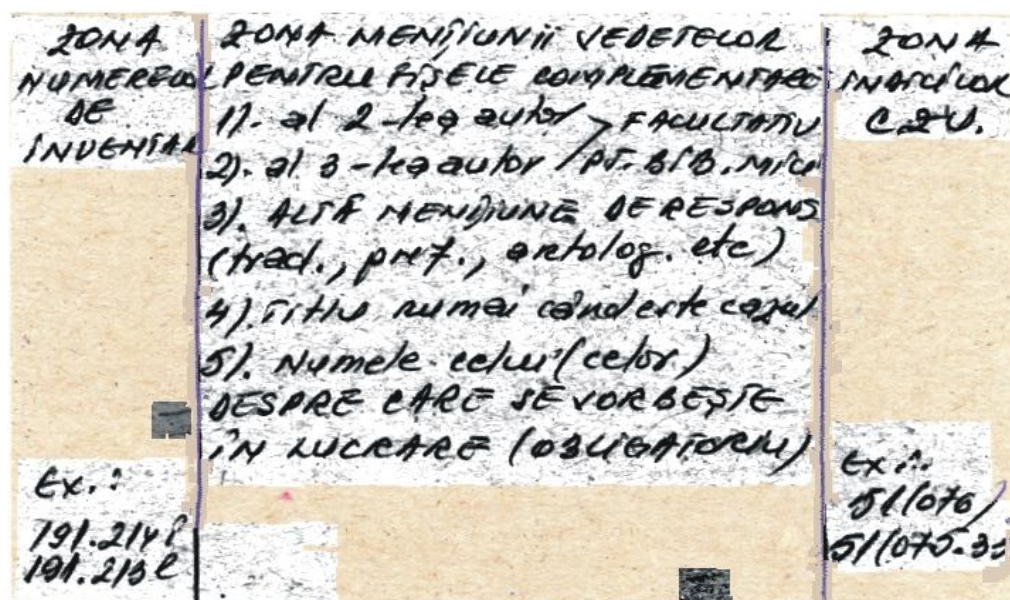 ZONA
NUMERELOR
DE
INVENTAR
Ex.:
191.214 l
191.213 l
ZONA MENȚIUNII VEDETELOR
PENTRU FIȘELE COMPLEMENTARE
1). al 2-lea autor > FACULTATIV
2). al 3-lea autor / PT. BIB. MICI
3). ALTĂ MENȚIUNE DE RESPONS
(trad., pref., antolog. etc)
4). Titlu numai când este cazul
5). Numele celui (celor)
DESPRE CARE SE VORBEȘTE
ÎN LUCRARE (OBLIGATORIU)
ZONA
INDICILOR
C.Z.U.
Ex.:
51(076)
51(075.33